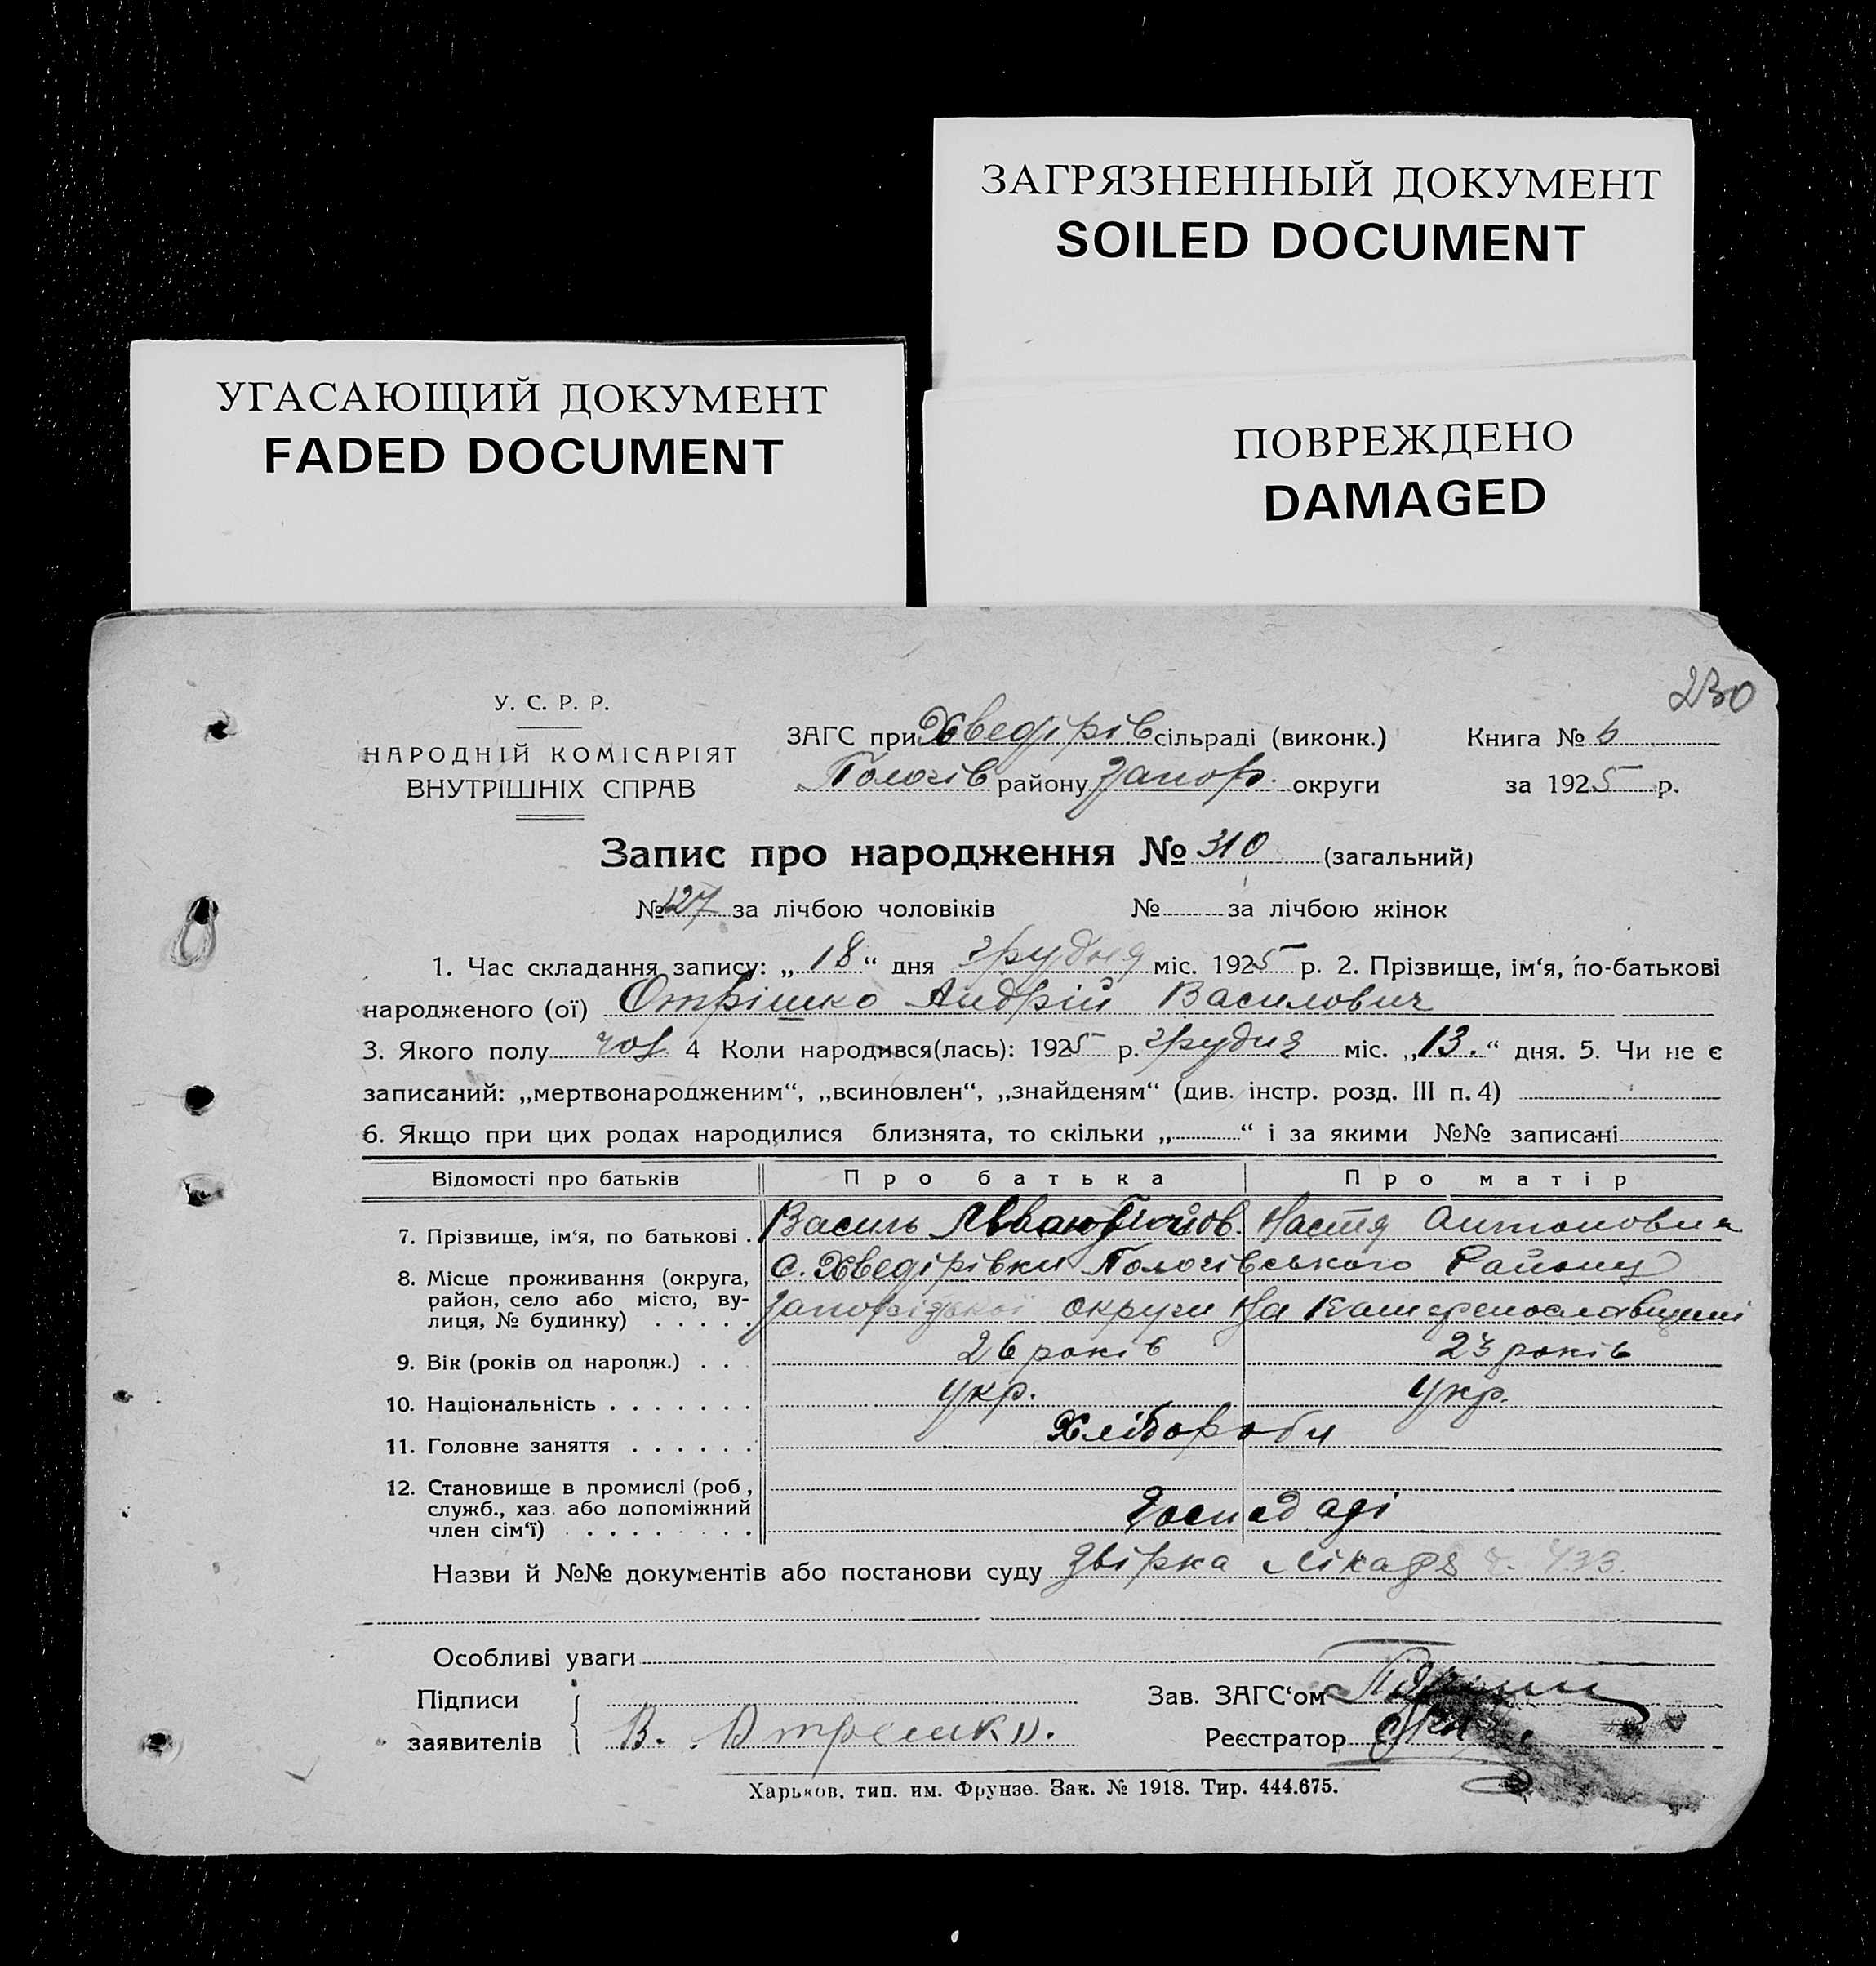 ЗАГРЯЗНЕННЫЙ ДОКУМЕНТ
SOILED DOCUMENT
УГАСАЮЩИЙ ДОКУМЕНТ
FADED DOCUMENT
ПОВРЕЖДЕНО
DAMAGED
230
У. С. Р. Р.
НАРОДНІЙ КОМІСАРІЯТ
ВНУТРІШНІХ СПРАВ
ЗАГС при Хведірів сільраді (виконк.)
Пологів району Запор. округи
Книга № 6
за 1925 р.
Запис про народження № 310 (загальний)
№ 127 за лічбою чоловіків № за лічбою жінок
1. Час складання запису: „18“ дня грудня міс. 1925 р. 2. Прізвище, ім‘я, по-батькові
народженого (ої) Отрішко Андрій Василович
3. Якого полу чол. 4 Коли народився(лась): 1925 р. грудня міс. „13.“ дня. 5. Чи не є
записаний: „мертвонародженим“, „всиновлен“, „знайденям“ (див. інстр. розд. III п. 4)
6. Якщо при цих родах народилися близнята, то скільки „ “ і за якими №№ записані
Відомості про батьків Про батька Про матір
7. Прізвище, ім‘я, по батькові . Василь Настя Антоновна
8. Місце проживання (округа, район, село або місто, вулиця, № будинку) . . . . .
с. Хведірівки Пологівського Району
Запорізької округи на Катеренославщині
9. Вік (років од народж.) . . 26 років 23 років
10. Національність . . . . . . . укр. укр.
11. Головне заняття . . . . . . Хлібороби
12. Становище в промислі (роб, служб., хаз. або допоміжний член сім‘ї) . . . . . . . .
Господарі
Назви й №№ документів або постанови суду Звірка Лікаря ч. 433.
Особливі уваги
Підписи
заявителів В. Отрешко.
Зав. ЗАГС‘ом
Реєстратор
Харьков, тип. им. Фрунзе. Зак. № 1918. Тир. 444.675.